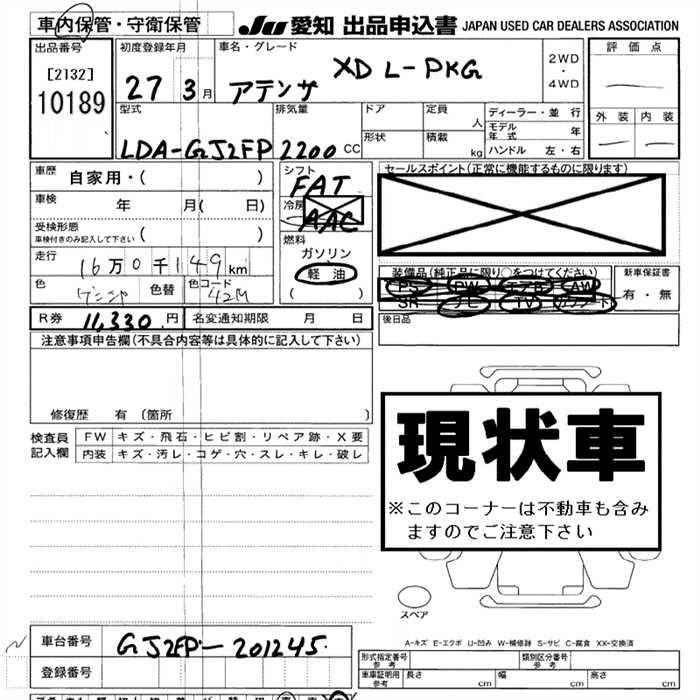 車内保管・守衛保管
JU 愛知 出品申込書 JAPAN USED CAR DEALERS ASSOCIATION
出品番号
[2132]
10189
初度登録年月
27 3月
車名・グレード
アテンザ XD L-PKG
2WD
・
4WD
評価点
外装 内装
型式
LDA-GJ2FP
排気量
2200 CC
ドア
形状
定員
人
積載
kg
ディーラー・並行
モデル年式 年
ハンドル 左・右
車歴 自家用・( )
車検 年 月( 日)
受検形態
車検付きのみ記入して下さい ( )
走行 16万0千149km
色 色替 色コード 42M
シフト FAT
冷房 AAC
燃料
ガソリン
軽油
( )
セールスポイント(正常に機能するものに限ります)
装備品(純正品に限り○をつけてください)
PS PW エアB AW
SR ナビ TV カワシート
新車保証書
有・無
後日品
R券 11,330円 名変通知期限 月 日
注意事項申告欄(不具合内容等は具体的に記入して下さい)
修復歴 有 〔箇所 〕
検査員記入欄
FW キズ・飛石・ヒビ割・リペア跡・X要
内装 キズ・汚レ・コゲ・穴・スレ・キレ・破レ
現状車
※このコーナーは不動車も含み
ますのでご注意下さい
スペア
A-キズ E-エクボ U-凹み W-補修跡 S-サビ C-腐食 XX-交換済
車台番号 GJ2FP-201245
登録番号
形式指定番号 参考
類別区分番号 参考
車庫証明用 参考 長さ cm 幅 cm 高さ cm